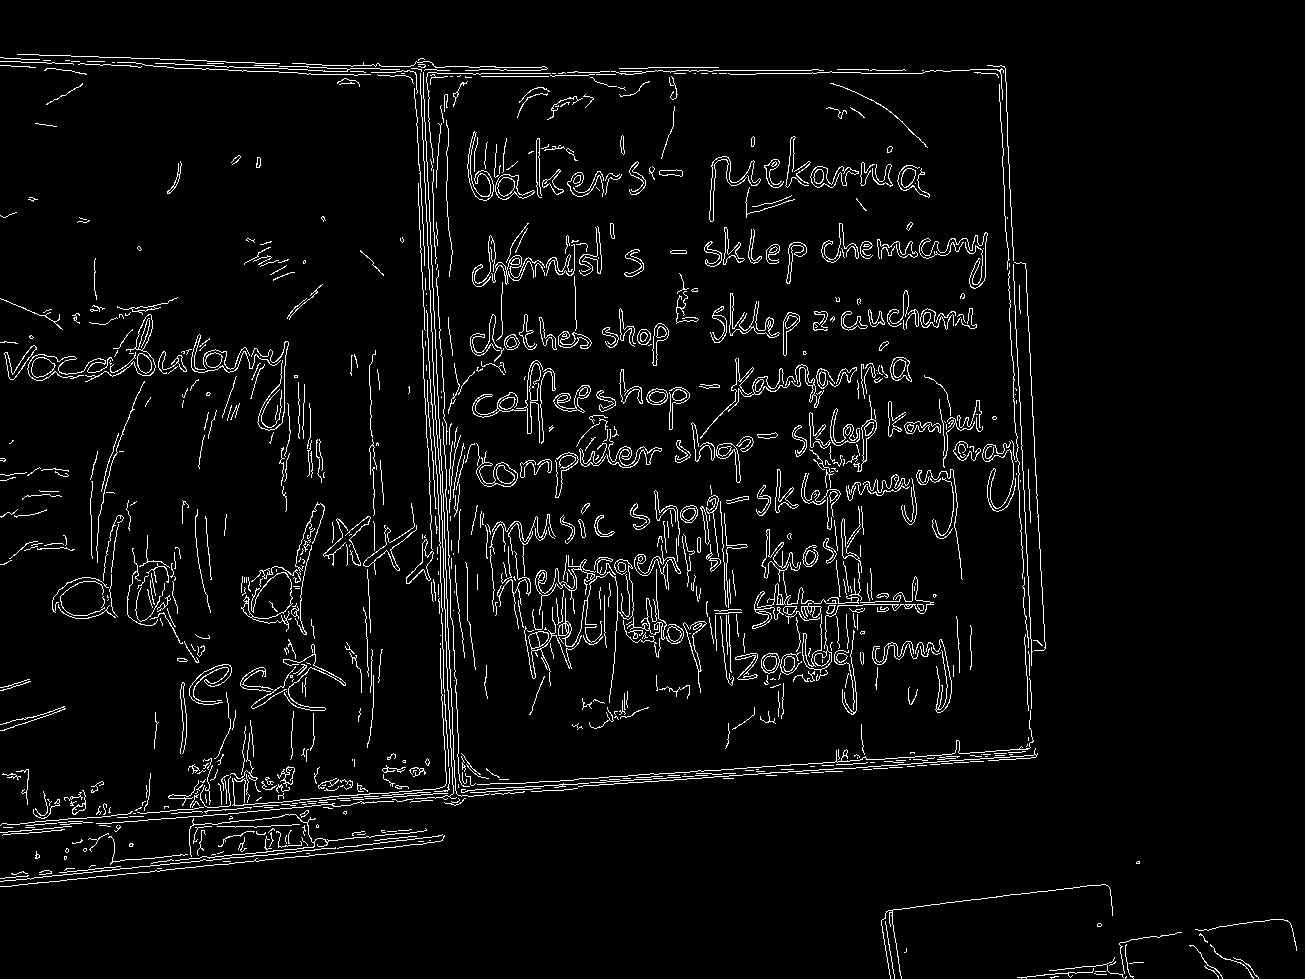 vocabulary
baker's - piekarnia
chemist's - sklep chemiczny
clothes shop - sklep z ciuchami
coffee shop - kawiarnia
computer shop - sklep komput.
erowy
music shop - sklep muzyczny
newsagent's - kiosk
pet shop - sklep z zat.
zoologiczny
est
xxx